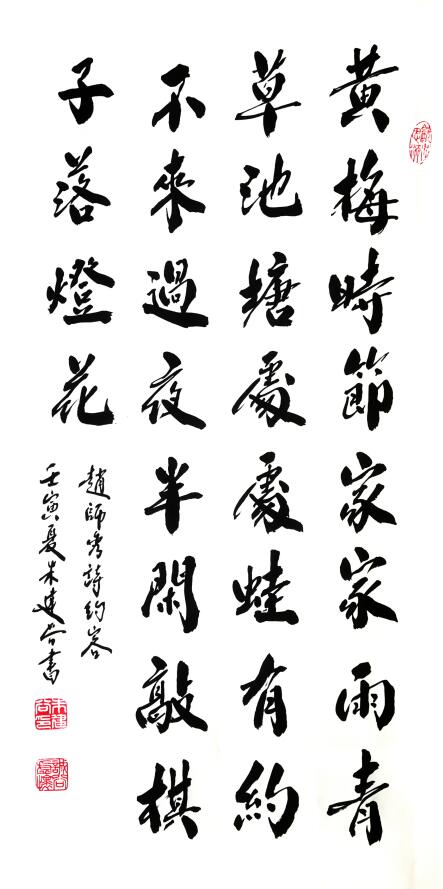 黃梅時節家家雨青
草池塘處處蛙有約
不來過夜半閑敲棋
子落燈花
趙師秀詩約客
壬寅夏朱建谷書